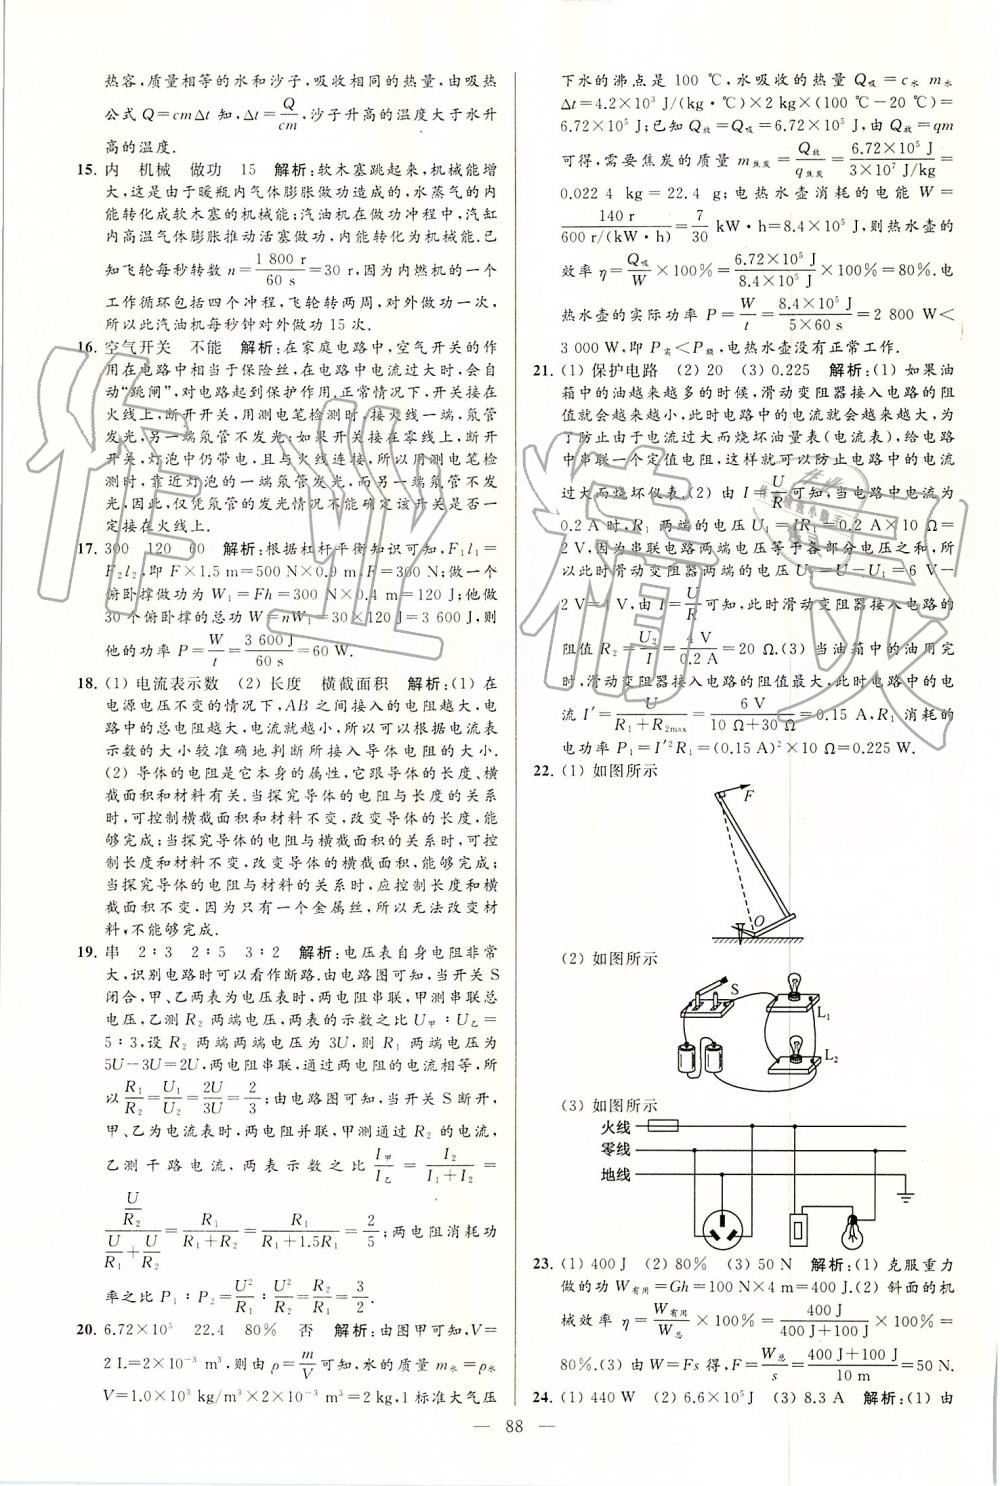 热容,质量相等的水和沙子,吸收相同的热量,由吸热
公式 Q=cmΔt 知,Δt=Q/cm,沙子升高的温度大于水升
高的温度.
15. 内 机械 做功 15 解析:软木塞跳起来,机械能增
大,这是由于暖瓶内气体膨胀做功造成的,水蒸气的内
能转化成软木塞的机械能;汽油机在做功冲程中,汽缸
内高温气体膨胀推动活塞做功,内能转化为机械能.已
知飞轮每秒转数 n=1 800 r/60 s=30 r,因为内燃机的一个
工作循环包括四个冲程,飞轮转两周,对外做功一次,
所以此汽油机每秒钟对外做功 15 次.
16. 空气开关 不能 解析:在家庭电路中,空气开关的作
用在电路中相当于保险丝,在电路中电流过大时,会自
动“跳闸”,对电路起到保护作用.正常情况下,开关接在
火线上,断开开关,用测电笔检测时,接火线一端,氖管
发光,另一端氖管不发光;如果开关接在零线上,断开
开关,灯泡中仍带电,且与火线连接,所以用测电笔检
测时,靠近灯泡的一端氖管发光,而另一端氖管不发
光,因此,仅凭氖管的发光情况不能确定该开关是否一
定接在火线上.
17. 300 120 60 解析:根据杠杆平衡知识可知,F₁l₁=
F₂l₂,即 F×1.5 m=500 N×0.9 m,F=300 N;做一个
俯卧撑做功为 W₁=Fh=300 N×0.4 m=120 J;他做
30 个俯卧撑的总功 W=nW₁=30×120 J=3 600 J,则
他的功率 P=W/t=3 600 J/60 s=60 W.
18. (1) 电流表示数 (2) 长度 横截面积 解析:(1) 在
电源电压不变的情况下,AB 之间接入的电阻越大,电
路中的总电阻越大,电流就越小,所以可以根据电流表
示数的大小较准确地判断所接入导体电阻的大小.
(2) 导体的电阻是它本身的属性,它跟导体的长度、横
截面积和材料有关.当探究导体的电阻与长度的关系
时,可控制横截面积和材料不变,改变导体的长度,能
够完成;当探究导体的电阻与横截面积的关系时,可控
制长度和材料不变,改变导体的横截面积,能够完成;
当探究导体的电阻与材料的关系时,应控制长度和横
截面积不变.因为只有一个金属丝,所以无法改变材
料,不能够完成.
19. 串 2∶3 2∶5 3∶2 解析:电压表自身电阻非常
大,识别电路时可以看作断路.由电路图可知,当开关 S
闭合,甲、乙两表为电压表时,两电阻串联,甲测串联总
电压,乙测 R₂ 两端电压,两表的示数之比 U甲∶U乙=
5∶3,设 R₂ 两端两端电压为 3U,则 R₁ 两端电压为
5U−3U=2U,两电阻串联,通过两电阻的电流相等,所
以 R₁/R₂=U₁/U₂=2U/3U=2/3;由电路图可知,当开关 S 断开,
甲、乙为电流表时,两电阻并联,甲测通过 R₂ 的电流,
乙测干路电流,两表示数之比 I甲/I乙=I₂/(I₁+I₂)=
(U/R₂)/(U/R₁+U/R₂)=R₁/(R₁+R₂)=R₁/(R₁+1.5R₁)=2/5;两电阻消耗功
率之比 P₁∶P₂=U²/R₁∶U²/R₂=R₂/R₁=3/2.
20. 6.72×10⁵ 22.4 80% 否 解析:由图甲可知,V=
2 L=2×10⁻³ m³,则由 ρ=m/V 可知,水的质量 m水=ρ水
V=1.0×10³ kg/m³×2×10⁻³ m³=2 kg,1 标准大气压
下水的沸点是 100 ℃,水吸收的热量 Q吸=c水 m水
Δt=4.2×10³ J/(kg·℃)×2 kg×(100 ℃−20 ℃)=
6.72×10⁵ J;已知 Q放=Q吸=6.72×10⁵ J,由 Q放=qm
可得,需要焦炭的质量 m焦炭=Q放/q焦炭=6.72×10⁵ J/3×10⁷ J/kg=
0.022 4 kg=22.4 g;电热水壶消耗的电能 W=
140 r/600 r/(kW·h)=7/30 kW·h=8.4×10⁵ J,则热水壶的
效率 η=Q吸/W×100%=6.72×10⁵ J/8.4×10⁵ J×100%=80%.电
热水壶的实际功率 P=W/t=8.4×10⁵ J/5×60 s=2 800 W<
3 000 W,即 P实<P额,电热水壶没有正常工作.
21. (1) 保护电路 (2) 20 (3) 0.225 解析:(1) 如果油
箱中的油越来越多的时候,滑动变阻器接入电路的阻
值就会越来越小,此时电路中的电流就会越来越大,为
了防止由于电流过大而烧坏油量表(电流表),给电路
中串联一个定值电阻,这样就可以防止电路中的电流
过大而烧坏仪表.(2) 由 I=U/R 可知,当电路中电流为
0.2 A 时,R₁ 两端的电压 U₁=IR₁=0.2 A×10 Ω=
2 V,因为串联电路两端电压等于各部分电压之和,所
以此时滑动变阻器两端的电压 U₂=U−U₁=6 V−
2 V=4 V,由 I=U/R 可知,此时滑动变阻器接入电路的
阻值 R₂=U₂/I=4 V/0.2 A=20 Ω.(3) 当油箱中的油用完
时,滑动变阻器接入电路的阻值最大,此时电路中的电
流 I′=U/(R₁+R₂max)=6 V/(10 Ω+30 Ω)=0.15 A,R₁ 消耗的
电功率 P₁=I′²R₁=(0.15 A)²×10 Ω=0.225 W.
22. (1) 如图所示
F
O
(2) 如图所示
S
L₁
L₂
(3) 如图所示
火线
零线
地线
23. (1) 400 J (2) 80% (3) 50 N 解析:(1) 克服重力
做的功 W有用=Gh=100 N×4 m=400 J.(2) 斜面的机
械效率 η=W有用/W总×100%=400 J/(400 J+100 J)×100%=
80%.(3) 由 W=Fs 得,F=W总/s=(400 J+100 J)/10 m=50 N.
24. (1) 440 W (2) 6.6×10⁵ J (3) 8.3 A 解析:(1) 由
— 88 —
作业精灵